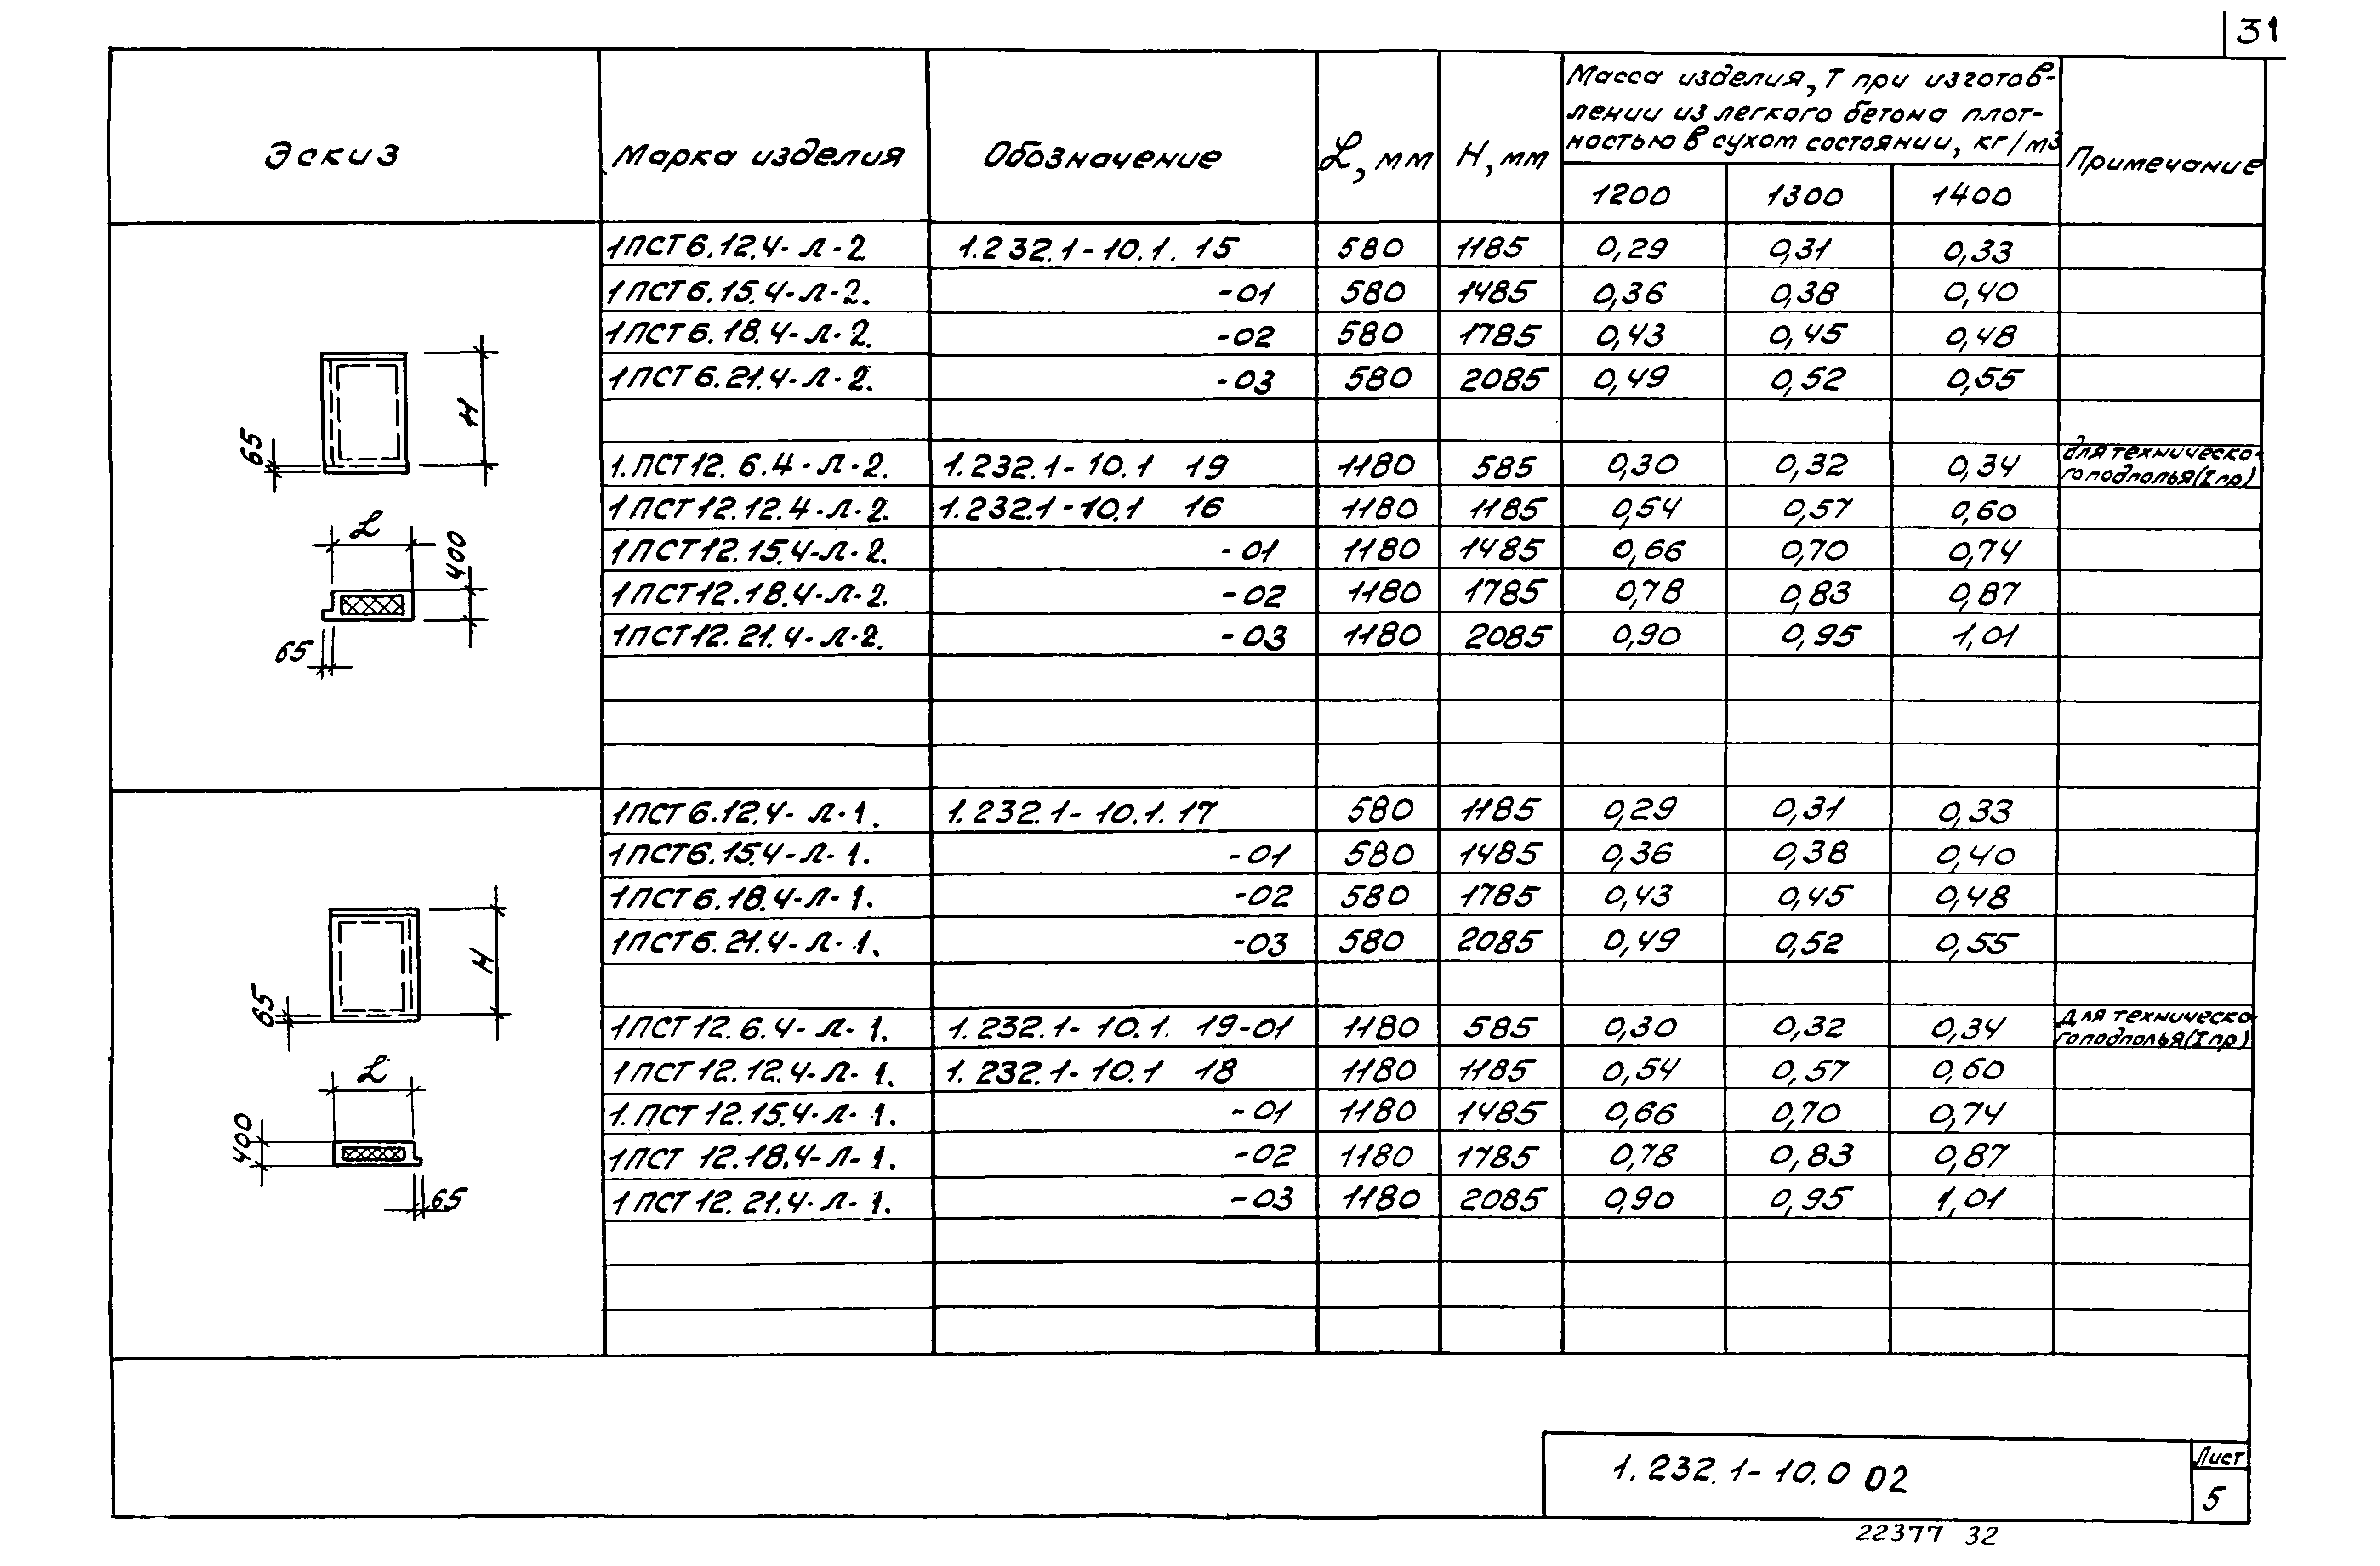 31
Эскиз
Марка изделия
Обозначение
L, мм
H, мм
Масса изделия, Т при изготов-
лении из легкого бетона плот-
ностью в сухом состоянии, кг/м3
Примечание
1200 1300 1400
1ПСТ6.12.4-Л-2 1.232.1-10.1. 15 580 1185 0,29 0,31 0,33
1ПСТ6.15.4-Л-2. -01 580 1485 0,36 0,38 0,40
1ПСТ6.18.4-Л-2. -02 580 1785 0,43 0,45 0,48
1ПСТ6.21.4-Л-2. -03 580 2085 0,49 0,52 0,55
1.ПСТ12.6.4-Л-2. 1.232.1-10.1 19 1180 585 0,30 0,32 0,34 для техническо-
го подполья (I пр)
1ПСТ12.12.4-Л-2. 1.232.1-10.1 16 1180 1185 0,54 0,57 0,60
1ПСТ12.15.4-Л-2. -01 1180 1485 0,66 0,70 0,74
1ПСТ12.18.4-Л-2. -02 1180 1785 0,78 0,83 0,87
1ПСТ12.21.4-Л-2. -03 1180 2085 0,90 0,95 1,01
H
65
L
400
65
1ПСТ6.12.4-Л-1. 1.232.1-10.1. 17 580 1185 0,29 0,31 0,33
1ПСТ6.15.4-Л-1. -01 580 1485 0,36 0,38 0,40
1ПСТ6.18.4-Л-1. -02 580 1785 0,43 0,45 0,48
1ПСТ6.21.4-Л-1. -03 580 2085 0,49 0,52 0,55
1ПСТ12.6.4-Л-1. 1.232.1-10.1. 19-01 1180 585 0,30 0,32 0,34 Для техническо-
го подполья (I пр)
1ПСТ12.12.4-Л-1. 1.232.1-10.1 18 1180 1185 0,54 0,57 0,60
1.ПСТ12.15.4-Л-1. -01 1180 1485 0,66 0,70 0,74
1ПСТ 12.18.4-Л-1. -02 1180 1785 0,78 0,83 0,87
1ПСТ12.21.4-Л-1. -03 1180 2085 0,90 0,95 1,01
H
65
L
400
65
1.232.1-10.0 02
Лист
5
22377 32